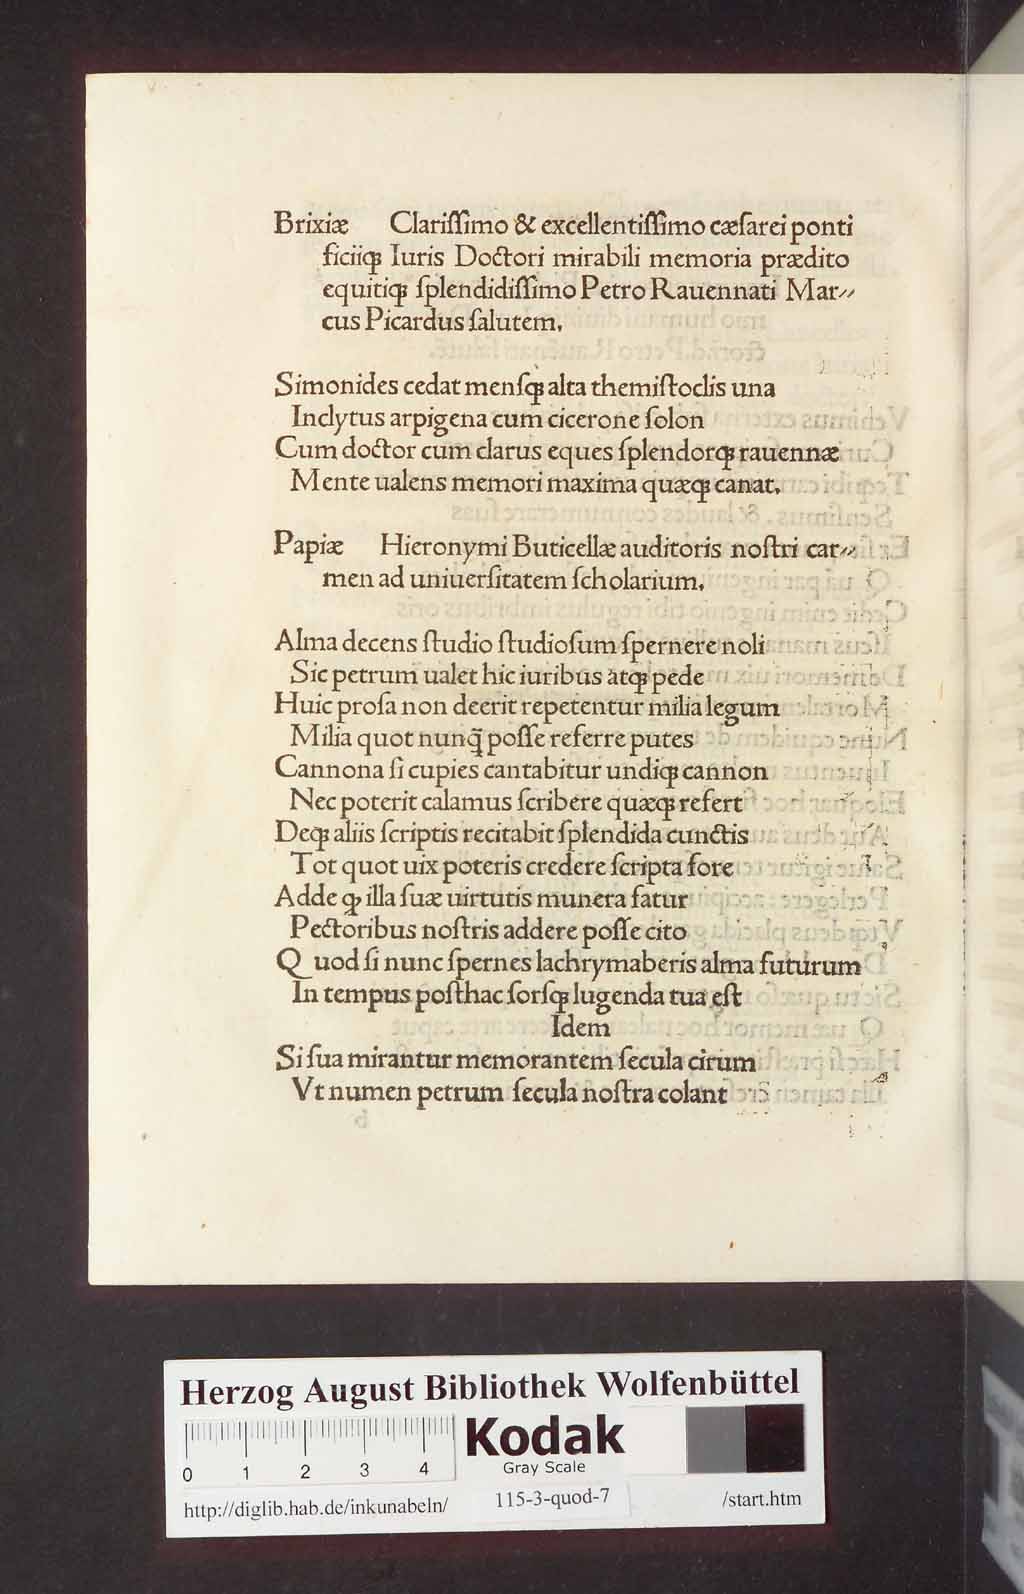 Brixiæ Clariſſimo & excellentiſſimo cæſarei ponti
ficiiqꝫ Iuris Doctori mirabili memoria prædito
equitiqꝫ ſplendidiſſimo Petro Rauennati Mar⸗
cus Picardus ſalutem.
Simonides cedat menſqꝫ alta themiſtoclis una
Inclytus arpigena cum cicerone ſolon
Cum doctor cum clarus eques ſplendorqꝫ rauennæ
Mente ualens memori maxima quæqꝫ canat.
Papiæ Hieronymi Buticellæ auditoris noſtri car⸗
men ad uniuerſitatem ſcholarium.
Alma decens ſtudio ſtudioſum ſpernere noli
Sic petrum ualet hic iuribus atqꝫ pede
Huic proſa non deerit repetentur milia legum
Milia quot nunq̃ poſſe referre putes
Cannona ſi cupies cantabitur undiqꝫ cannon
Nec poterit calamus ſcribere quæqꝫ refert
Deqꝫ aliis ſcriptis recitabit ſplendida cunctis
Tot quot uix poteris credere ſcripta fore
Adde ꝙ illa ſuæ uirtutis munera fatur
Pectoribus noſtris addere poſſe cito
Quod ſi nunc ſpernes lachrymaberis alma futurum
In tempus poſthac ſorſqꝫ lugenda tua eſt
Idem
Si ſua mirantur memorantem ſecula cirum
Vt numen petrum ſecula noſtra colant
Herzog August Bibliothek Wolfenbüttel
0 1 2 3 4
Kodak
Gray Scale
http://diglib.hab.de/inkunabeln/ 115-3-quod-7 /start.htm